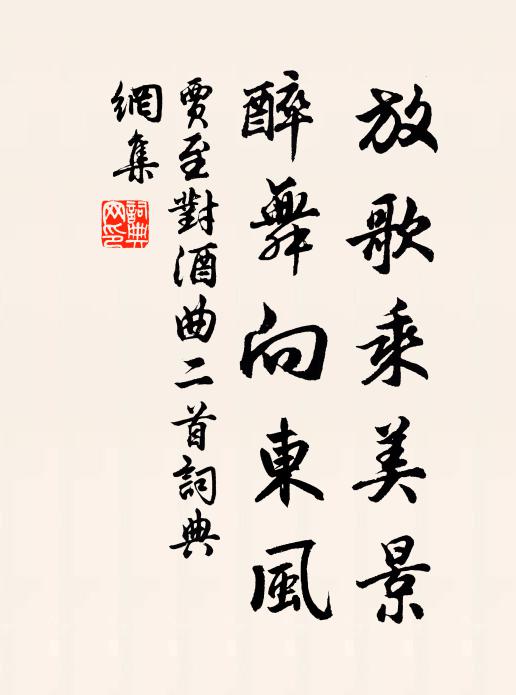 放歌乘美景
醉舞向東風
賈至對酒曲二首詞典
網集
詞典網印